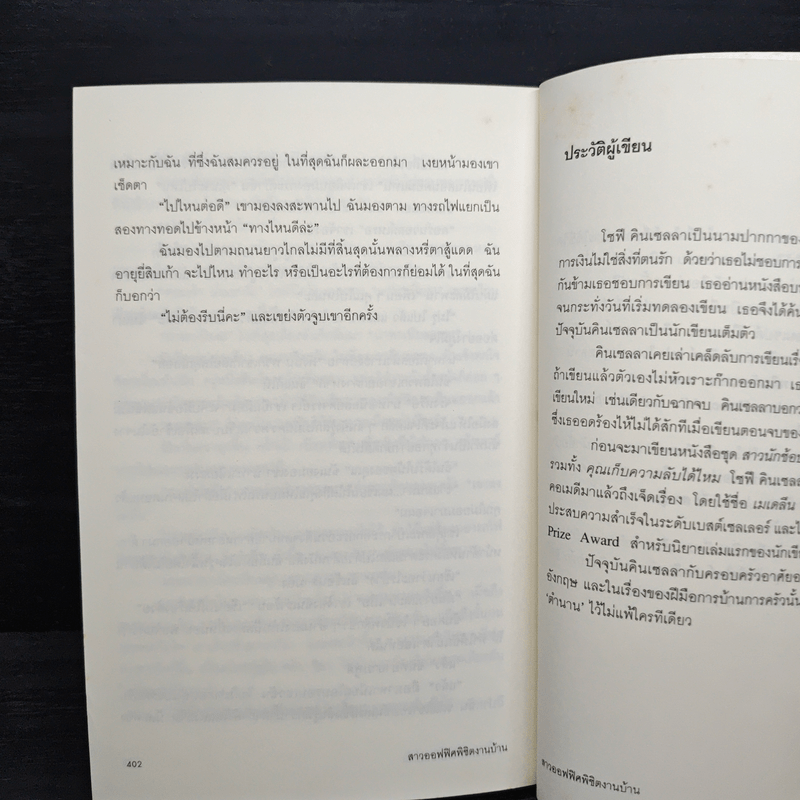 เหมาะกับฉัน ที่ซึ่งฉันสมควรอยู่ ในที่สุดฉันก็ผละออกมา เงยหน้ามองเขา
เช็ดตา
“ไปไหนต่อดี” เขามองลงสะพานไป ฉันมองตาม ทางรถไฟแยกเป็น
สองทางทอดไปข้างหน้า “ทางไหนดีล่ะ”
ฉันมองไปตามถนนยาวไกลไม่มีที่สิ้นสุดนั้นพลางหรี่ตาสู้แดด ฉัน
อายุยี่สิบเก้า จะไปไหน ทำอะไร หรือเป็นอะไรที่ต้องการก็ย่อมได้ ในที่สุดฉัน
ก็บอกว่า
“ไม่ต้องรีบนี่คะ” และเขย่งตัวจูบเขาอีกครั้ง
402
สาวออฟฟิศพิชิตงานบ้าน
ประวัติผู้เขียน
โซฟี คินเซลลาเป็นนามปากกาของ
การเงินไม่ใช่สิ่งที่ตนรัก ด้วยว่าเธอไม่ชอบการ
กันข้ามเธอชอบการเขียน เธออ่านหนังสือบ
จนกระทั่งวันที่เริ่มทดลองเขียน เธอจึงได้ค้น
ปัจจุบันคินเซลลาเป็นนักเขียนเต็มตัว
คินเซลลาเคยเล่าเคล็ดลับการเขียนเรื่
ถ้าเขียนแล้วตัวเองไม่หัวเราะก๊ากออกมา เธ
เขียนใหม่ เช่นเดียวกับฉากจบ คินเซลลาบอกว
ซึ่งเธออดร้องไห้ไม่ได้สักทีเมื่อเขียนตอนจบของ
ก่อนจะมาเขียนหนังสือชุด สาวนักช้อป
รวมทั้ง คุณเก็บความลับได้ไหม โซฟี คินเซล
คอเมดีมาแล้วถึงเจ็ดเรื่อง โดยใช้ชื่อ เมเดลีน
ประสบความสำเร็จในระดับเบสต์เซลเลอร์ และไ
Prize Award สำหรับนิยายเล่มแรกของนักเขี
ปัจจุบันคินเซลลากับครอบครัวอาศัยอ
อังกฤษ และในเรื่องของฝีมือการบ้านการครัวนั้น
‘ตำนาน’ ไว้ไม่แพ้ใครทีเดียว
สาวออฟฟิศพิชิตงานบ้าน